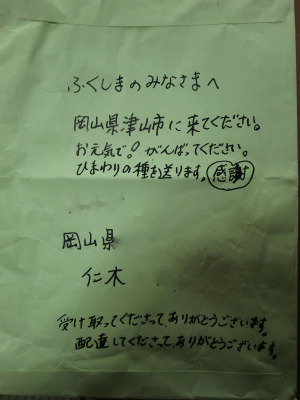 ふくしまのみなさまへ
岡山県津山市に来てください。
お元気で!がんばってください。
ひまわりの種を送ります。感謝
岡山県
仁木
受け取ってくださって、ありがとうございます。
配達してくださって、ありがとうございます。